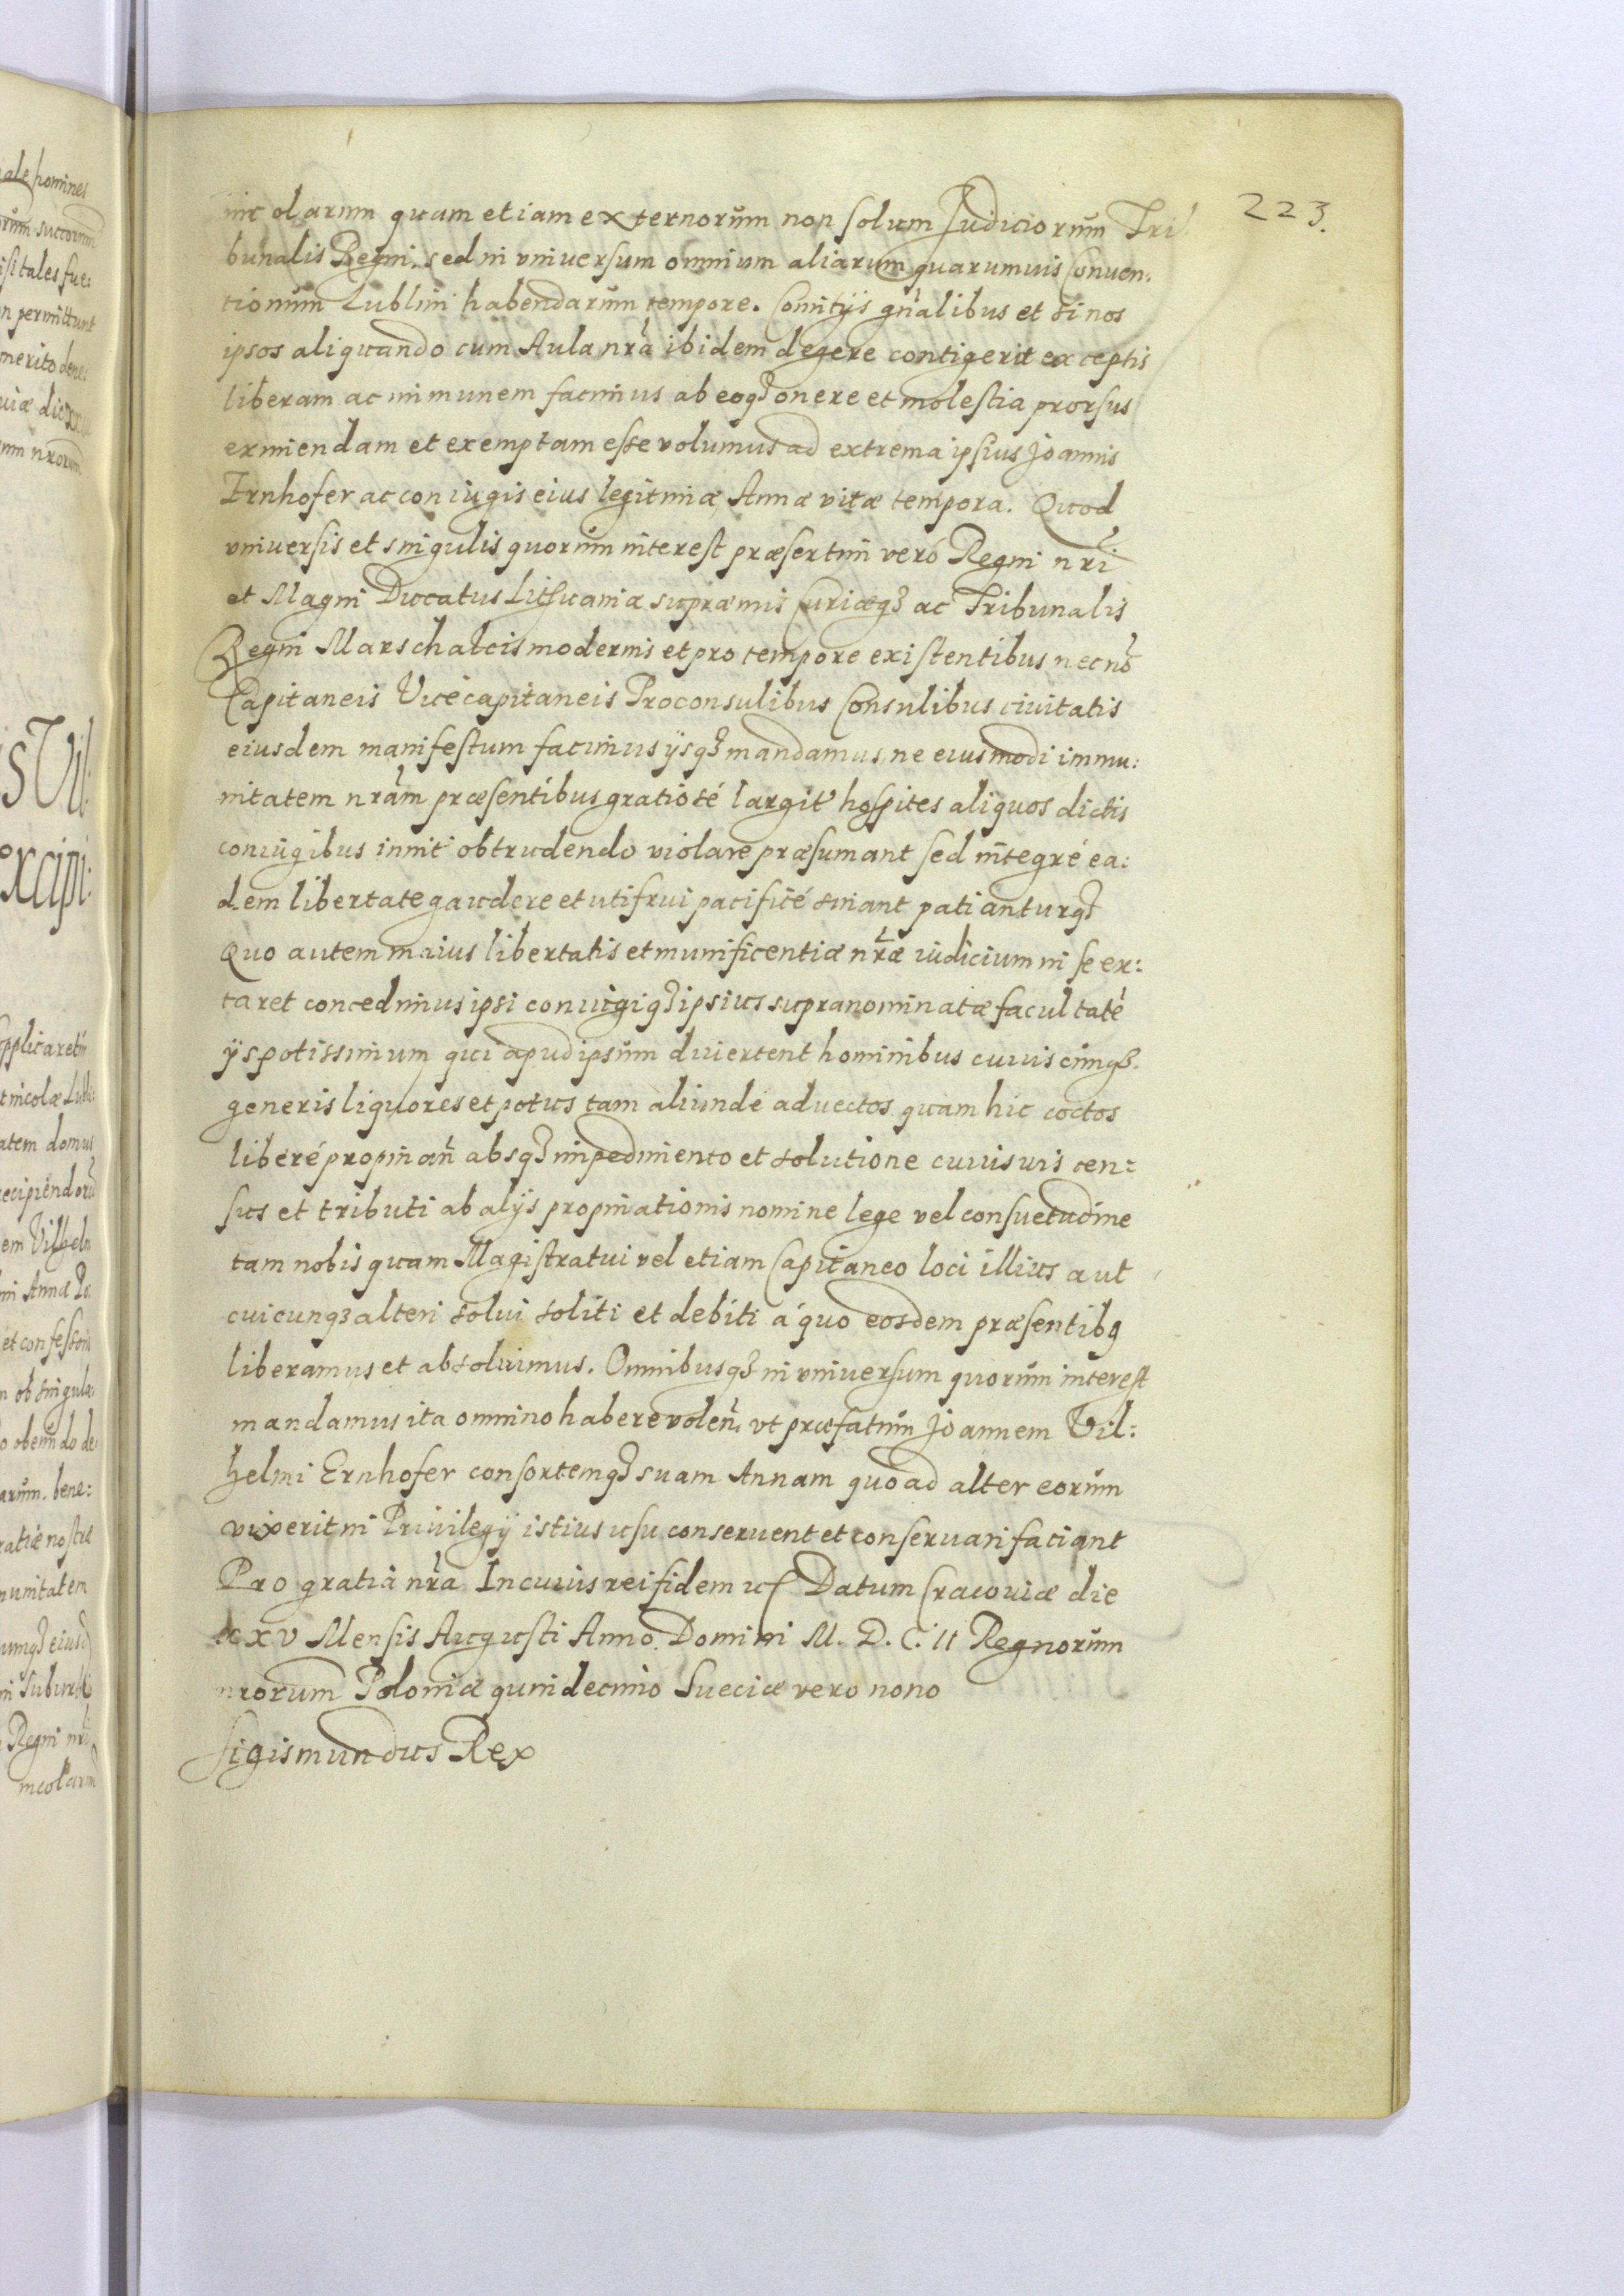 223.
incolarum quam etiam externorum non solum Judiciorum Tri
bunalis Regni, sed in vniuersum omnium aliarum quarumuis Conuen:
tionum Lublini habendarum tempore. Comitijs gn̄alibus et si nos
ipsos aliquando cum Aula nr̄a ibidem degere contigerit exceptis
liberam ac immunem facimus ab eoq3 onere et molestia prorsus
eximendam et exemptam esse volumus ad extrema ipsius Joannis
Ernhofer ac coniugis eius legitimæ Annæ vitæ tempora. Quod
vniuersis et singulis quorum interest præsertim veró Regni nr̄i
et Magni Ducatus Lithuaniæ supræmis Curiæq3 ac Tribunalis
Regni Marschalcis modernis et pro tempore existentibus necnō
Capitaneis Vicécapitaneis Proconsulibus Consulibus ciuitatis
eiusdem manifestum facimus ijsq3 mandamus, ne eiusmodi immu:
nitatem nr̄am præsentibus gratiosé largit hospites aliquos dictis
coniugibus inuit obtrudendo violare præsumant sed integré ea:
dem libertate gaudere et uti frui pacificé sinant patianturq3
Quo autem maius libertatis et munificentiæ nr̄æ iudicium in se ex:
taret concedimus ipsi coniugiq3 ipsius supranominatæ facultatē
ijs potissimum qui apud ipsum diuertent hominibus cuiuscunq3
generis liquores et potus tam aliundé aduectos quam hic coctos
liberé propinan̄ absq3 impedimento et solutione cuiusuis cen:
sus et tributi ab alijs propinationis nomine lege vel consuetudine
tam nobis quam Magistratui vel etiam Capitaneo loci illius aut
cuicunq3 alteri solui soliti et debiti á quo eosdem præsentib9
liberamus et absoluimus. Omnibusq3 in vniuersum quorum interest
mandamus ita omnino habere volen̄, vt præfatum Joannem Vil:
helmi Ernhofer consortemq3 suam Annam quoad alter eorum
vixerit in Priuilegij istius usu conseruent et conseruari faciant
Pro gratia nr̄a In cuius rei fidem Datum Cracouiæ die
xxv Mensis Augusti Anno Domini M. D. C. II Regnorum
nrorum Poloniæ quindecimo Sueciæ vero nono
Sigismundus Rex